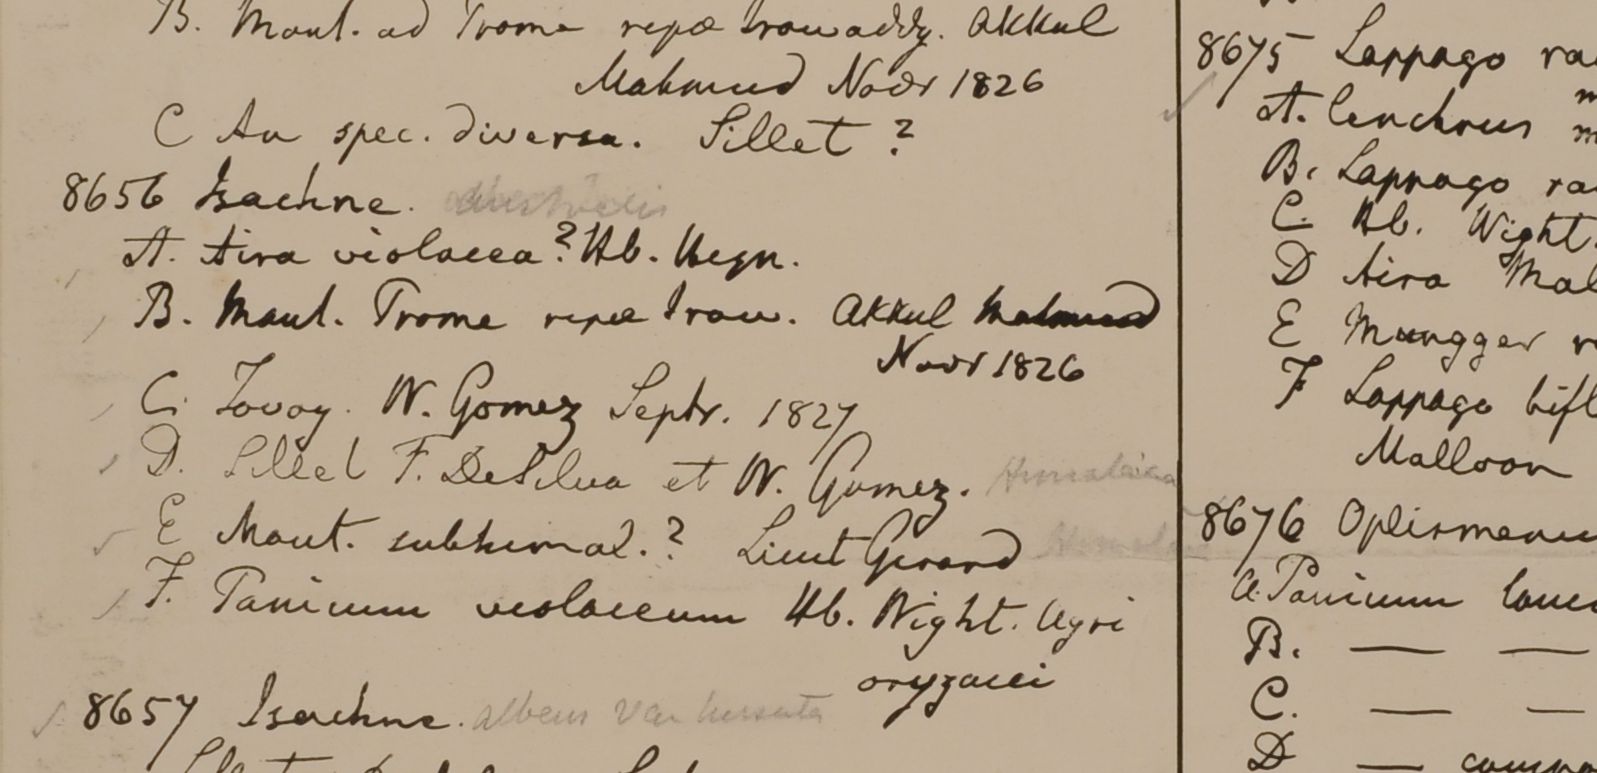 B. Mont. ad Prome ripæ Irawaddy. Akkul
Mahmud Novr 1826
C An spec. diversa. Sillet ?
8656 Isachne.
A. Aira violacea? Hb. Heyn.
B. Mont. Prome ripæ Iraw. Akkul Mahmud
Novr 1826
C. Tavoy. W. Gomez Septr. 1827
D. Sillet F. DeSilva et W. Gomez. Himalaica
E Mont. subhimal.? Lieut Gerard
F. Panicum violaceum Hb. Wight. Agri
oryzacei
8657 Isachne. albens var hirsuta
8675 Lappago ra
A. Cenchrus
B. Lappago ra
C. Hb. Wight.
D Aira Mal
E Mungger
F Lappago bifl
Malloon
8676 Oplismenu
A. Panicum lanc
B. — —
C. — —
D — compo